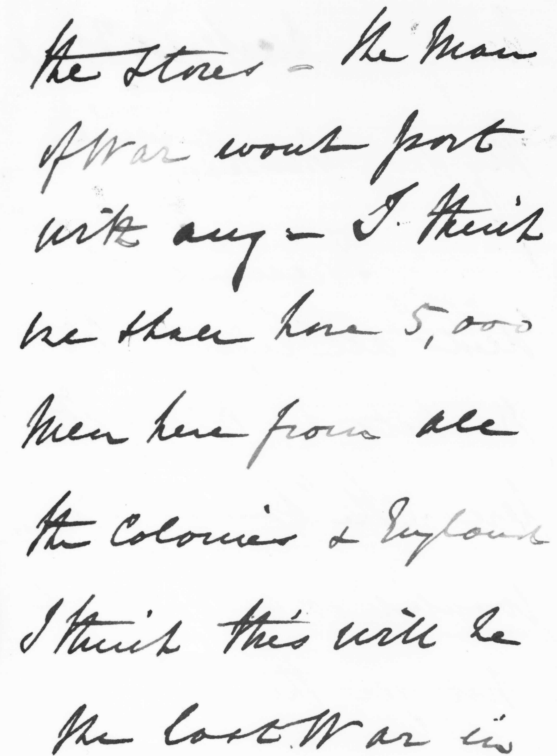 the Stores - the Man
of War wont part
with any - I think
we shall have 5,000
men here from all
the Colonies & England
I think this will be
the last War in